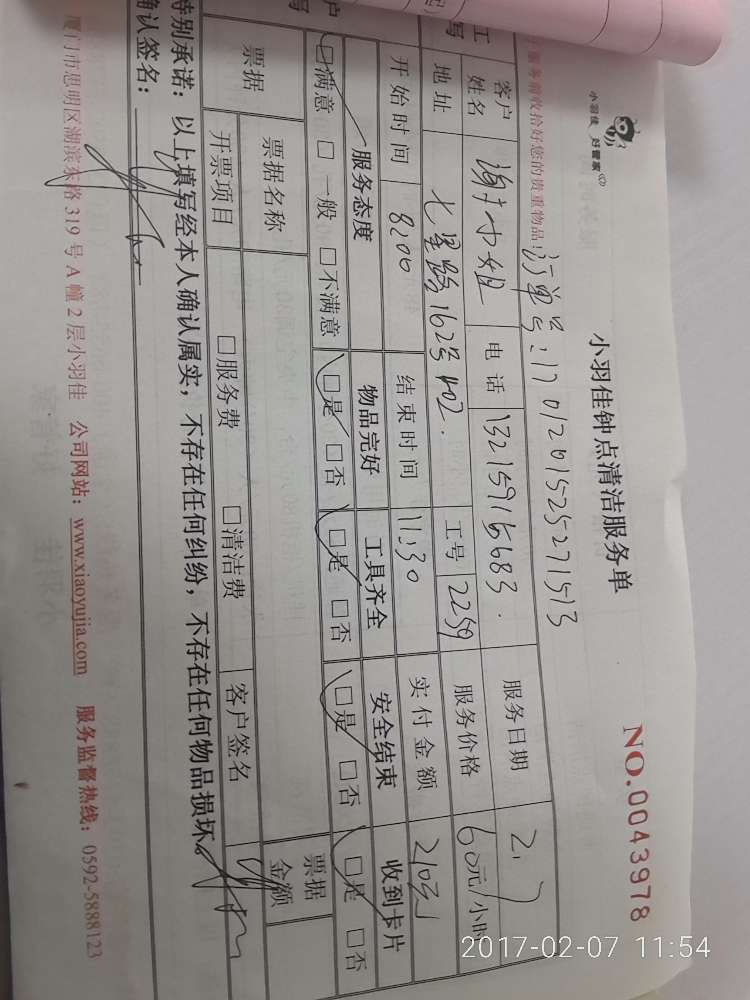 小羽佳 好管家
小羽佳钟点清洁服务单
NO.0043978
服务前收拾好您的贵重物品！
订单号：1701201525271513
客户姓名 谢小姐 电话 13215915683. 服务日期 2.7
地址 七星路162号402. 工号 2259 服务价格 60元/小时
开始时间 8:00 结束时间 11:30 实付金额 210元
服务态度 物品完好 工具齐全 安全结束 收到卡片
□满意 □一般 □不满意 □是 □否 □是 □否 □是 □否 □是 □否
票据 票据名称 票据金额
开票项目 □服务费 □清洁费 客户签名
特别承诺：以上填写经本人确认属实，不存在任何纠纷，不存在任何物品损坏。
确认签名：
厦门市思明区湖滨东路319号A幢2层小羽佳 公司网站：www.xiaoyujia.com 服务监督热线：0592-5888123
2017-02-07 11:54